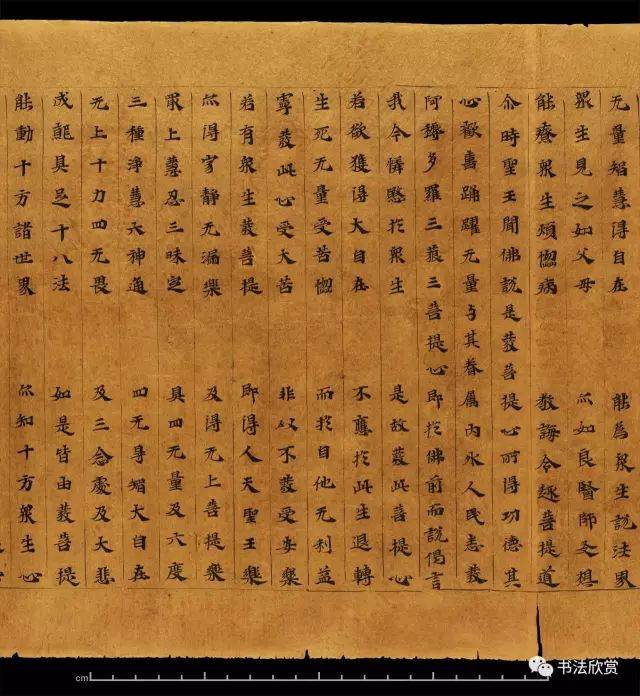 无量智慧得自在 能為眾生說法界
眾生見之如父母 亦如良醫師友想
能療眾生煩惱病 教誨令趣菩提道
尒時聖王聞佛說是發菩提心所得功德其
心歡喜踊躍无量与其眷属内外人民悉發
阿耨多羅三藐三菩提心即於佛前而說偈言
我今憐愍於眾生 是故發此菩提心
若欲獲得大自在 不應於此生退轉
生死无量受苦惱 而於自他无利益
寧發此心受大苦 非以不發受安樂
若有眾生發菩提 即得人天聖王樂
亦得寂静无漏樂 及得无上菩提樂
最上慧忍三昧定 具四无量及六度
三種淨慧六神通 四无导智大自在
无上十力四无畏 及三念處及大悲
成就具足十八法 如是皆由發菩提
能動十方諸世界 亦知十方眾生心
cm
书法欣赏